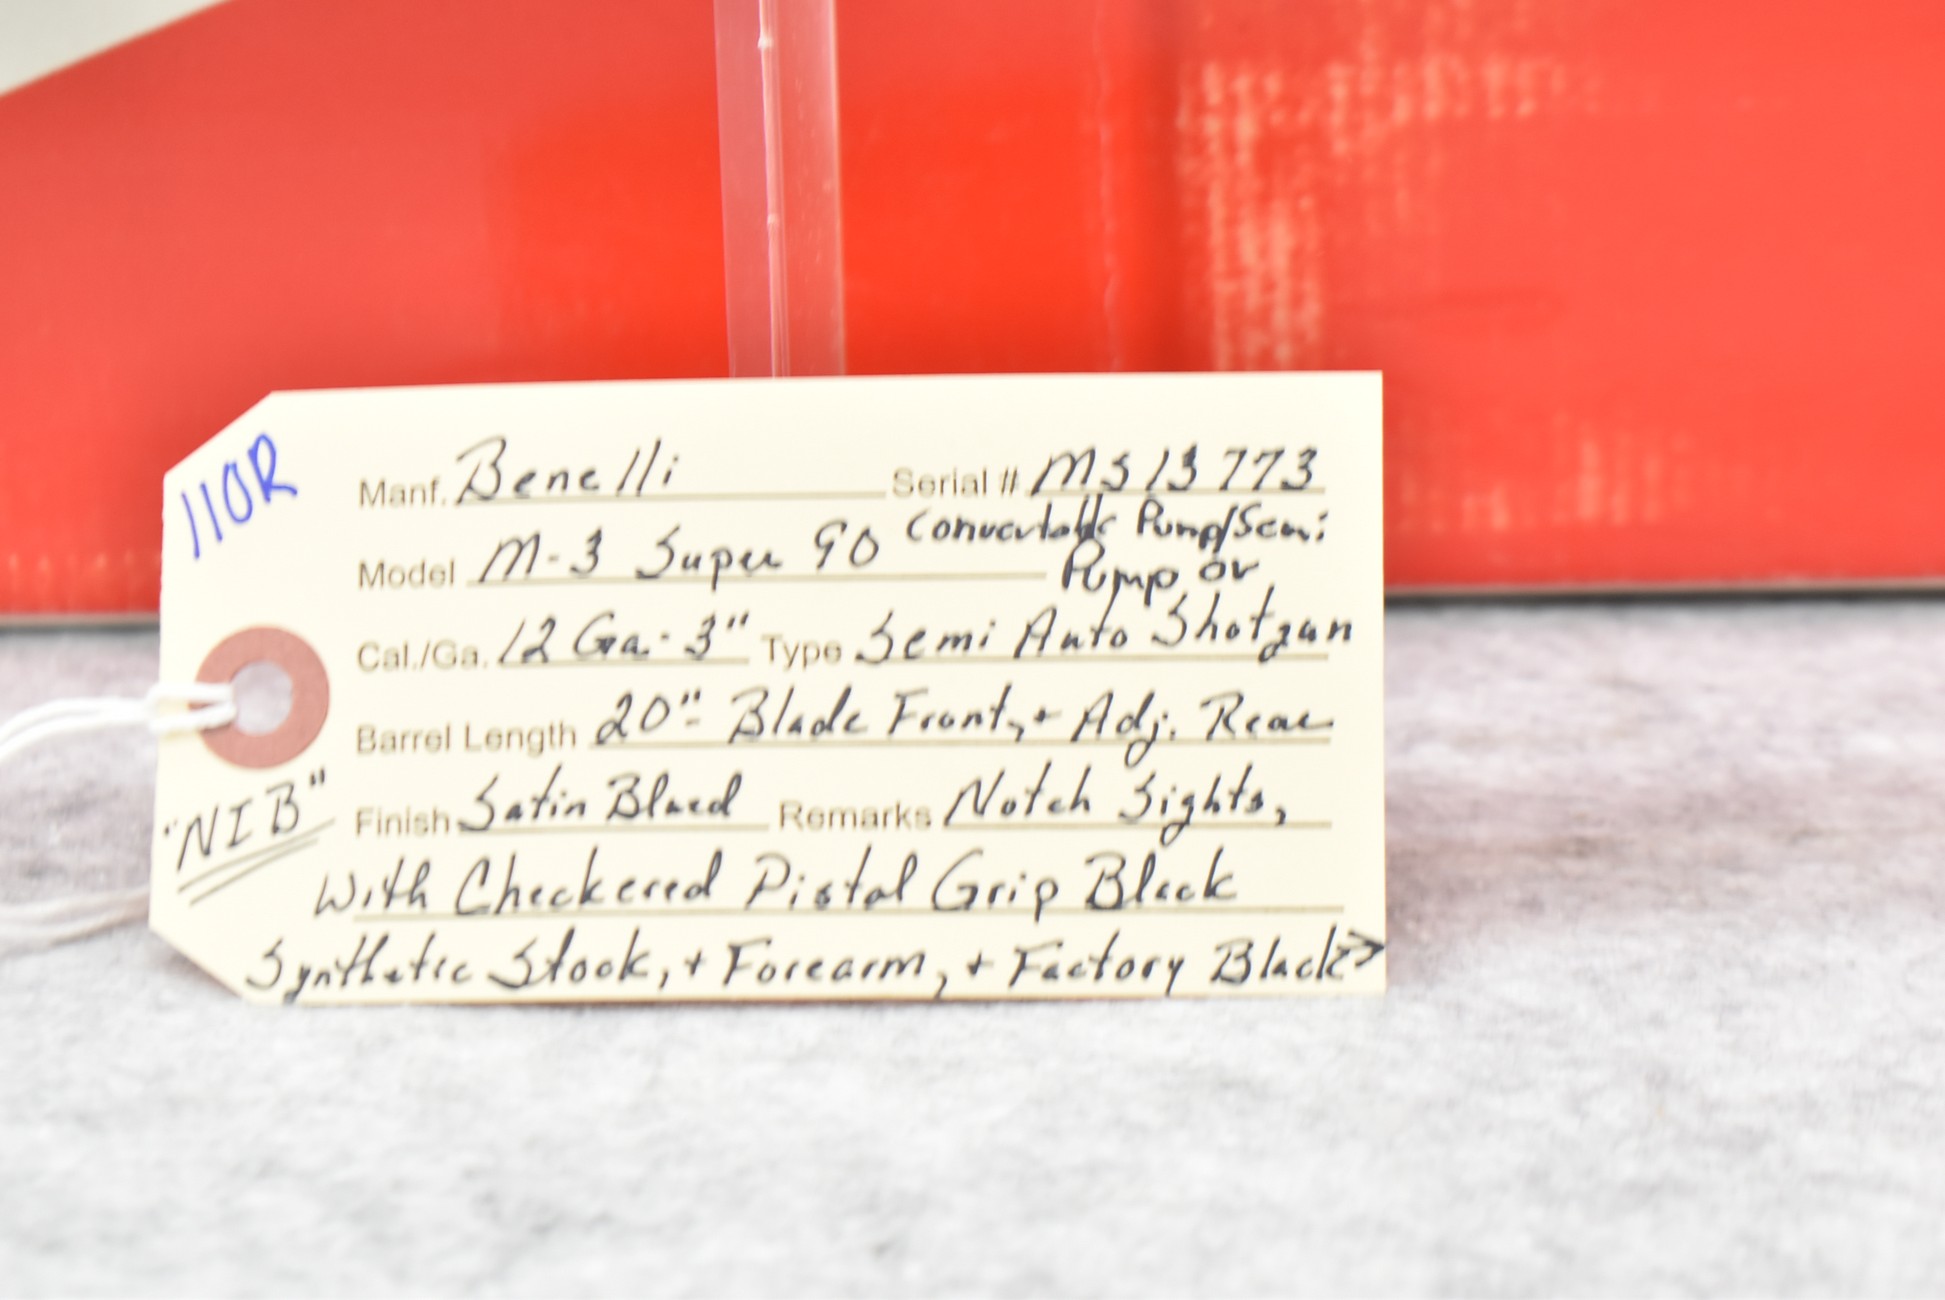 110R
Manf. Benelli Serial # M513773
Model M-3 Super 90 Convertable Pump/Semi
Pump or
Cal./Ga. 12 Ga.-3" Type Semi Auto Shotgun
Barrel Length 20"- Blade Front, + Adj. Rear
"NIB"
Finish Satin Blued Remarks Notch Sights,
With Checkered Pistol Grip Black
Synthetic Stock, + Forearm, + Factory Black→